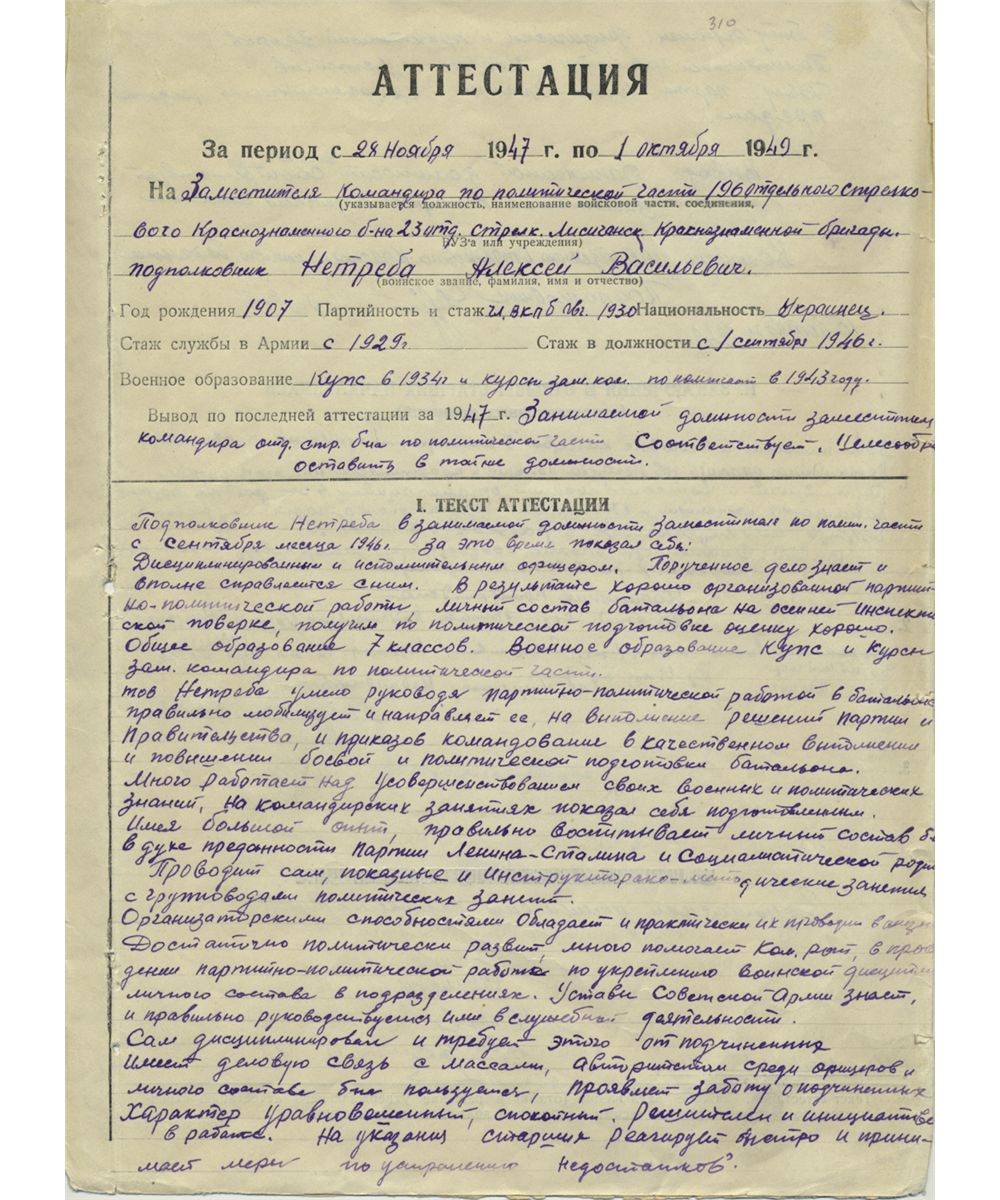 310
АТТЕСТАЦИЯ
За период с 28 Ноября 1947 г. по 1 октября 1949 г.
На Заместителя Командира по политической части 196 отдельного стрелко-
(указывается должность, наименование войсковой части, соединения,
вого Краснознаменного б-на 23 отд. стрелк. Лисичанск. Краснознаменной бригады.
ВУЗ'а или учреждения)
подполковник Нетреба Алексей Васильевич.
(воинское звание, фамилия, имя и отчество)
Год рождения 1907 Партийность и стаж чл. ВКПб 1930 Национальность Украинец.
Стаж службы в Армии с 1929г Стаж в должности с 1 сентября 1946 г.
Военное образование КУПС в 1934г и курсы зам. ком. по политчаст в 1943 году.
Вывод по последней аттестации за 1947 г. Занимаемой должности заместител
командира отд. стр. б-на по политической части Соответствует. Целесообр
оставить в той же должности.
I. ТЕКСТ АТТЕСТАЦИИ
Подполковник Нетреба в занимаемой должности заместителя по полит. части
с сентября месяца 1946г. За это время показал себя:
Дисциплинированным и исполнительным офицером. Порученное дело знает и
вполне справляется с ним. В результате хорошо организованной партий-
но-политической работы, личный состав батальона на осенней инспекти
ской поверке, получил по политической подготовке оценку хорошо.
Общее образование 7 классов. Военное образование КУПС и Курсы
зам. командира по политической части.
тов Нетреба умело руководя партийно-политической работой в батальоне
правильно мобилизует и направляет ее, на выполнение решений партии и
Правительства, и приказов командование в качественном выполнении
и повышении боевой и политической подготовки батальона.
Много работает над усовершенствованием своих военных и политических
знаний, на командирских занятиях показал себя подготовленным.
Имея большой опыт, правильно воспитывает личный состав б
в духе преданности партии Ленина-Сталина и Социалистической роди
Проводит сам, показные и инструкторско-методические занятия
с групповодами политических занятий.
Организаторскими способностями обладает и практически их проводит в
Достаточно политически развит, много помогает Ком. рот, в прове
дении партийно-политической работы по укреплению воинской дисципли
личного состава в подразделениях. Уставы Советской Армии знает,
и правильно руководствуется ими в служебной деятельности.
Сам дисциплинирован и требует этого от подчиненных
Имеет деловую связь с массами, авторитетом среди офицеров и
личного состава б-на пользуется, проявляет заботу о подчиненных
Характер уравновешенный, спокойный. Решителен и инициативе
в работе. На указания старших реагирует быстро и прини-
мает меры по устранению недостатков.